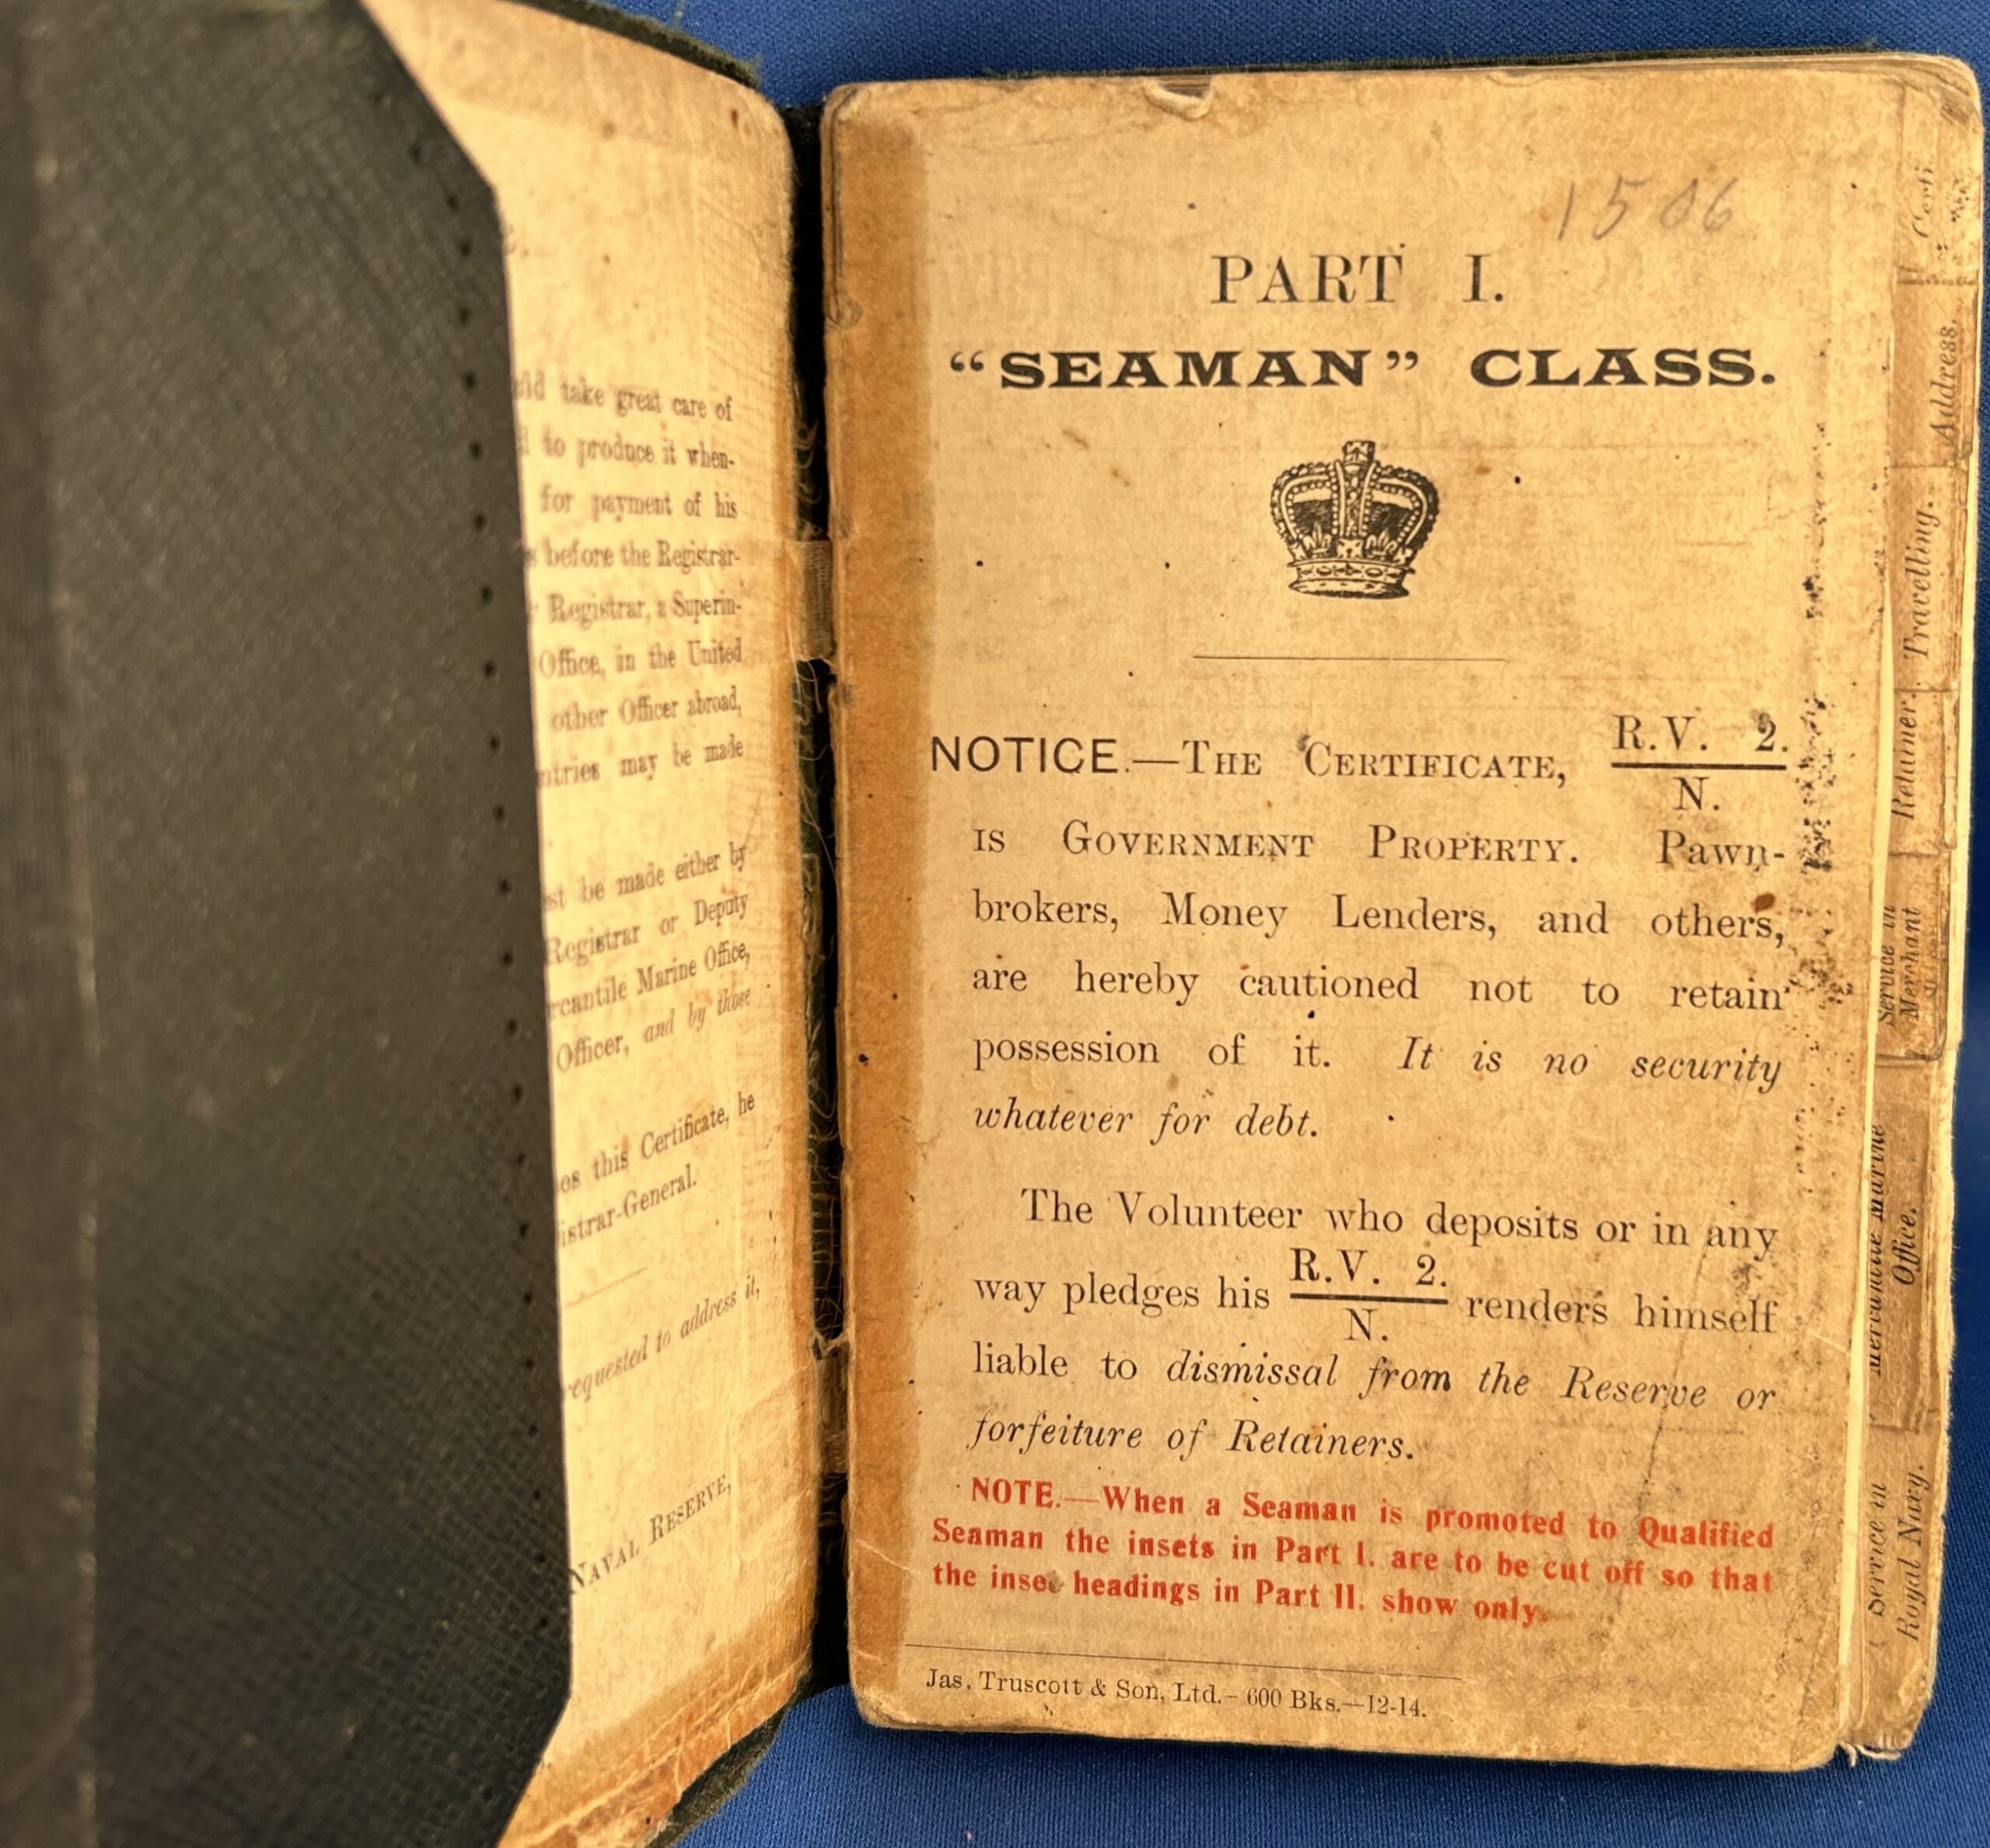 take great care of
to produce it when-
for payment of his
before the Registrar-
Registrar, a Superin-
Office, in the United
other Officer abroad,
may be made
be made either by
Registrar or Deputy
Marine Office,
Officer, and by those
this Certificate, he
requested to address it,
NAVAL RESERVE,
1506
PART I.
“SEAMAN” CLASS.
NOTICE.—THE CERTIFICATE, R.V. 2.
N.
IS GOVERNMENT PROPERTY. Pawn-
brokers, Money Lenders, and others,
are hereby cautioned not to retain
possession of it. It is no security
whatever for debt.
The Volunteer who deposits or in any
way pledges his R.V. 2. renders himself
N.
liable to dismissal from the Reserve or
forfeiture of Retainers.
NOTE.—When a Seaman is promoted to Qualified
Seaman the insets in Part I. are to be cut off so that
the inset headings in Part II. show only.
Jas. Truscott & Son, Ltd.—600 Bks.—12-14.
Address.
Travelling.
Retainer.
Service in
Merchant
Mercantile Marine
Office.
Service in
Royal Navy.